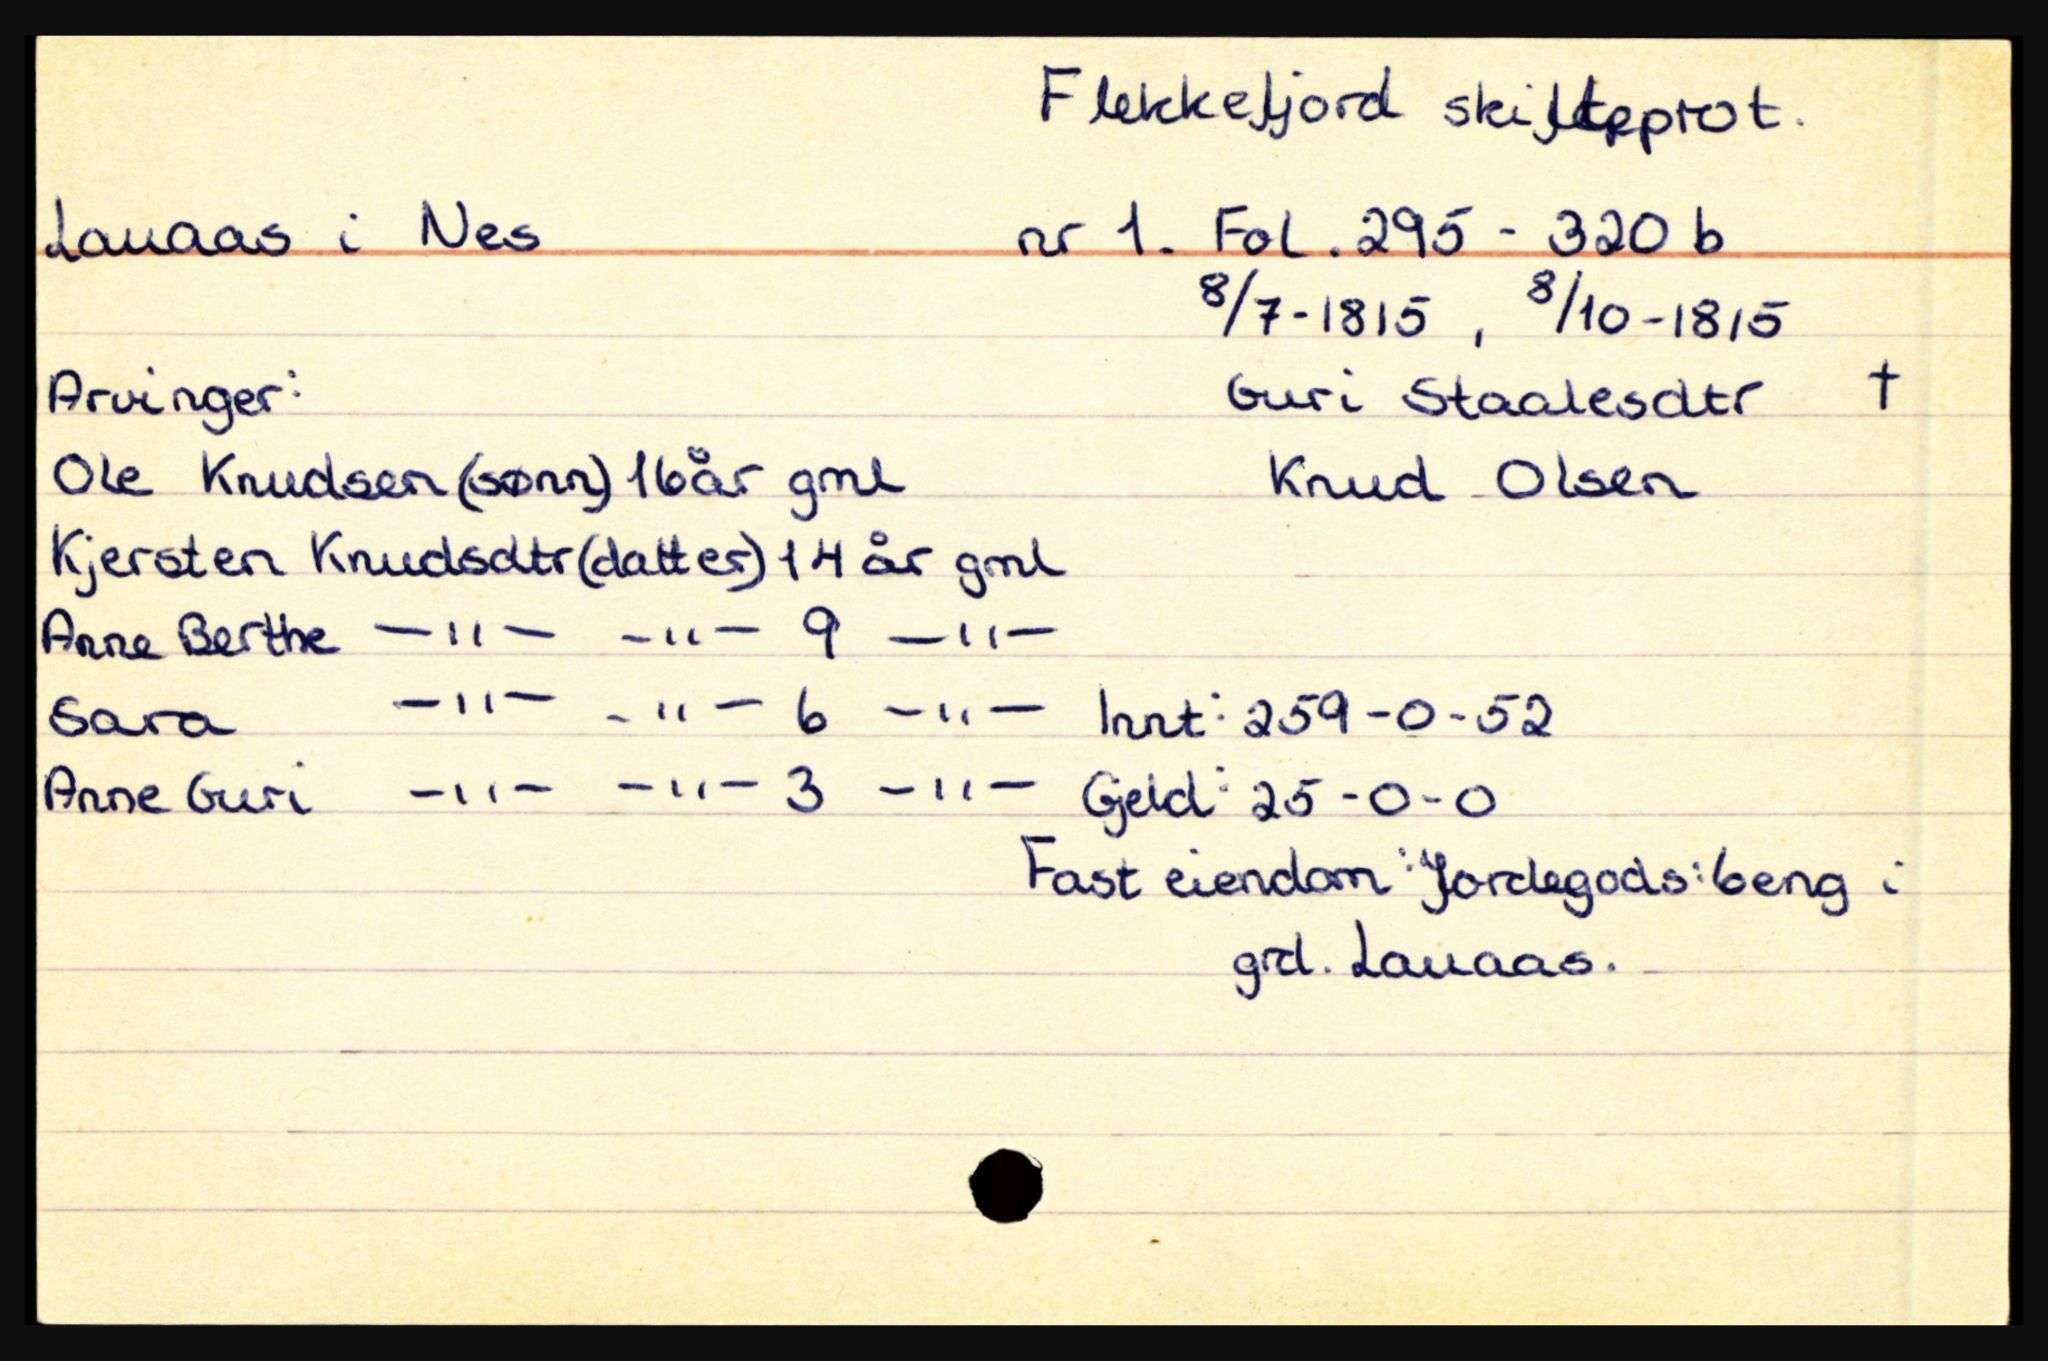 Flekkefjord skifteprot.
Lauaas i Nes nr 1. Fol. 295 - 320 b
8/7-1815 , 8/10-1815
Arvinger: Guri Staalesdtr †
Ole Knudsen (sønn) 16 år gml Knud Olsen
Kjersten Knudsdtr (datter) 14 år gml
Anne Berthe —"— —"— 9 —"—
Sara —"— —"— 6 —"— Innt: 259-0-52
Anne Guri —"— —"— 3 —"— Gjeld: 25-0-0
Fast eiendom: Jordegods: 6eng i
grd. Lauaas.